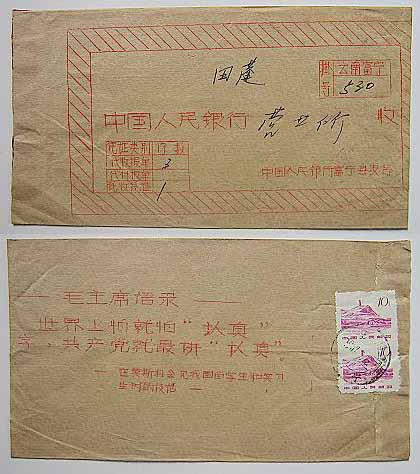 田蓬
云南富宁
530
中国人民银行 营业所 收
凭证类别 份数
代收报单 3
代付报单
1
中国人民银行富宁县支行
毛主席语录
世界上怕就怕“认真”二
字，共产党就最讲“认真”。
在莫斯科会见我国留学生和实习
生时的谈话
10
中国人民邮政
中国人民邮政